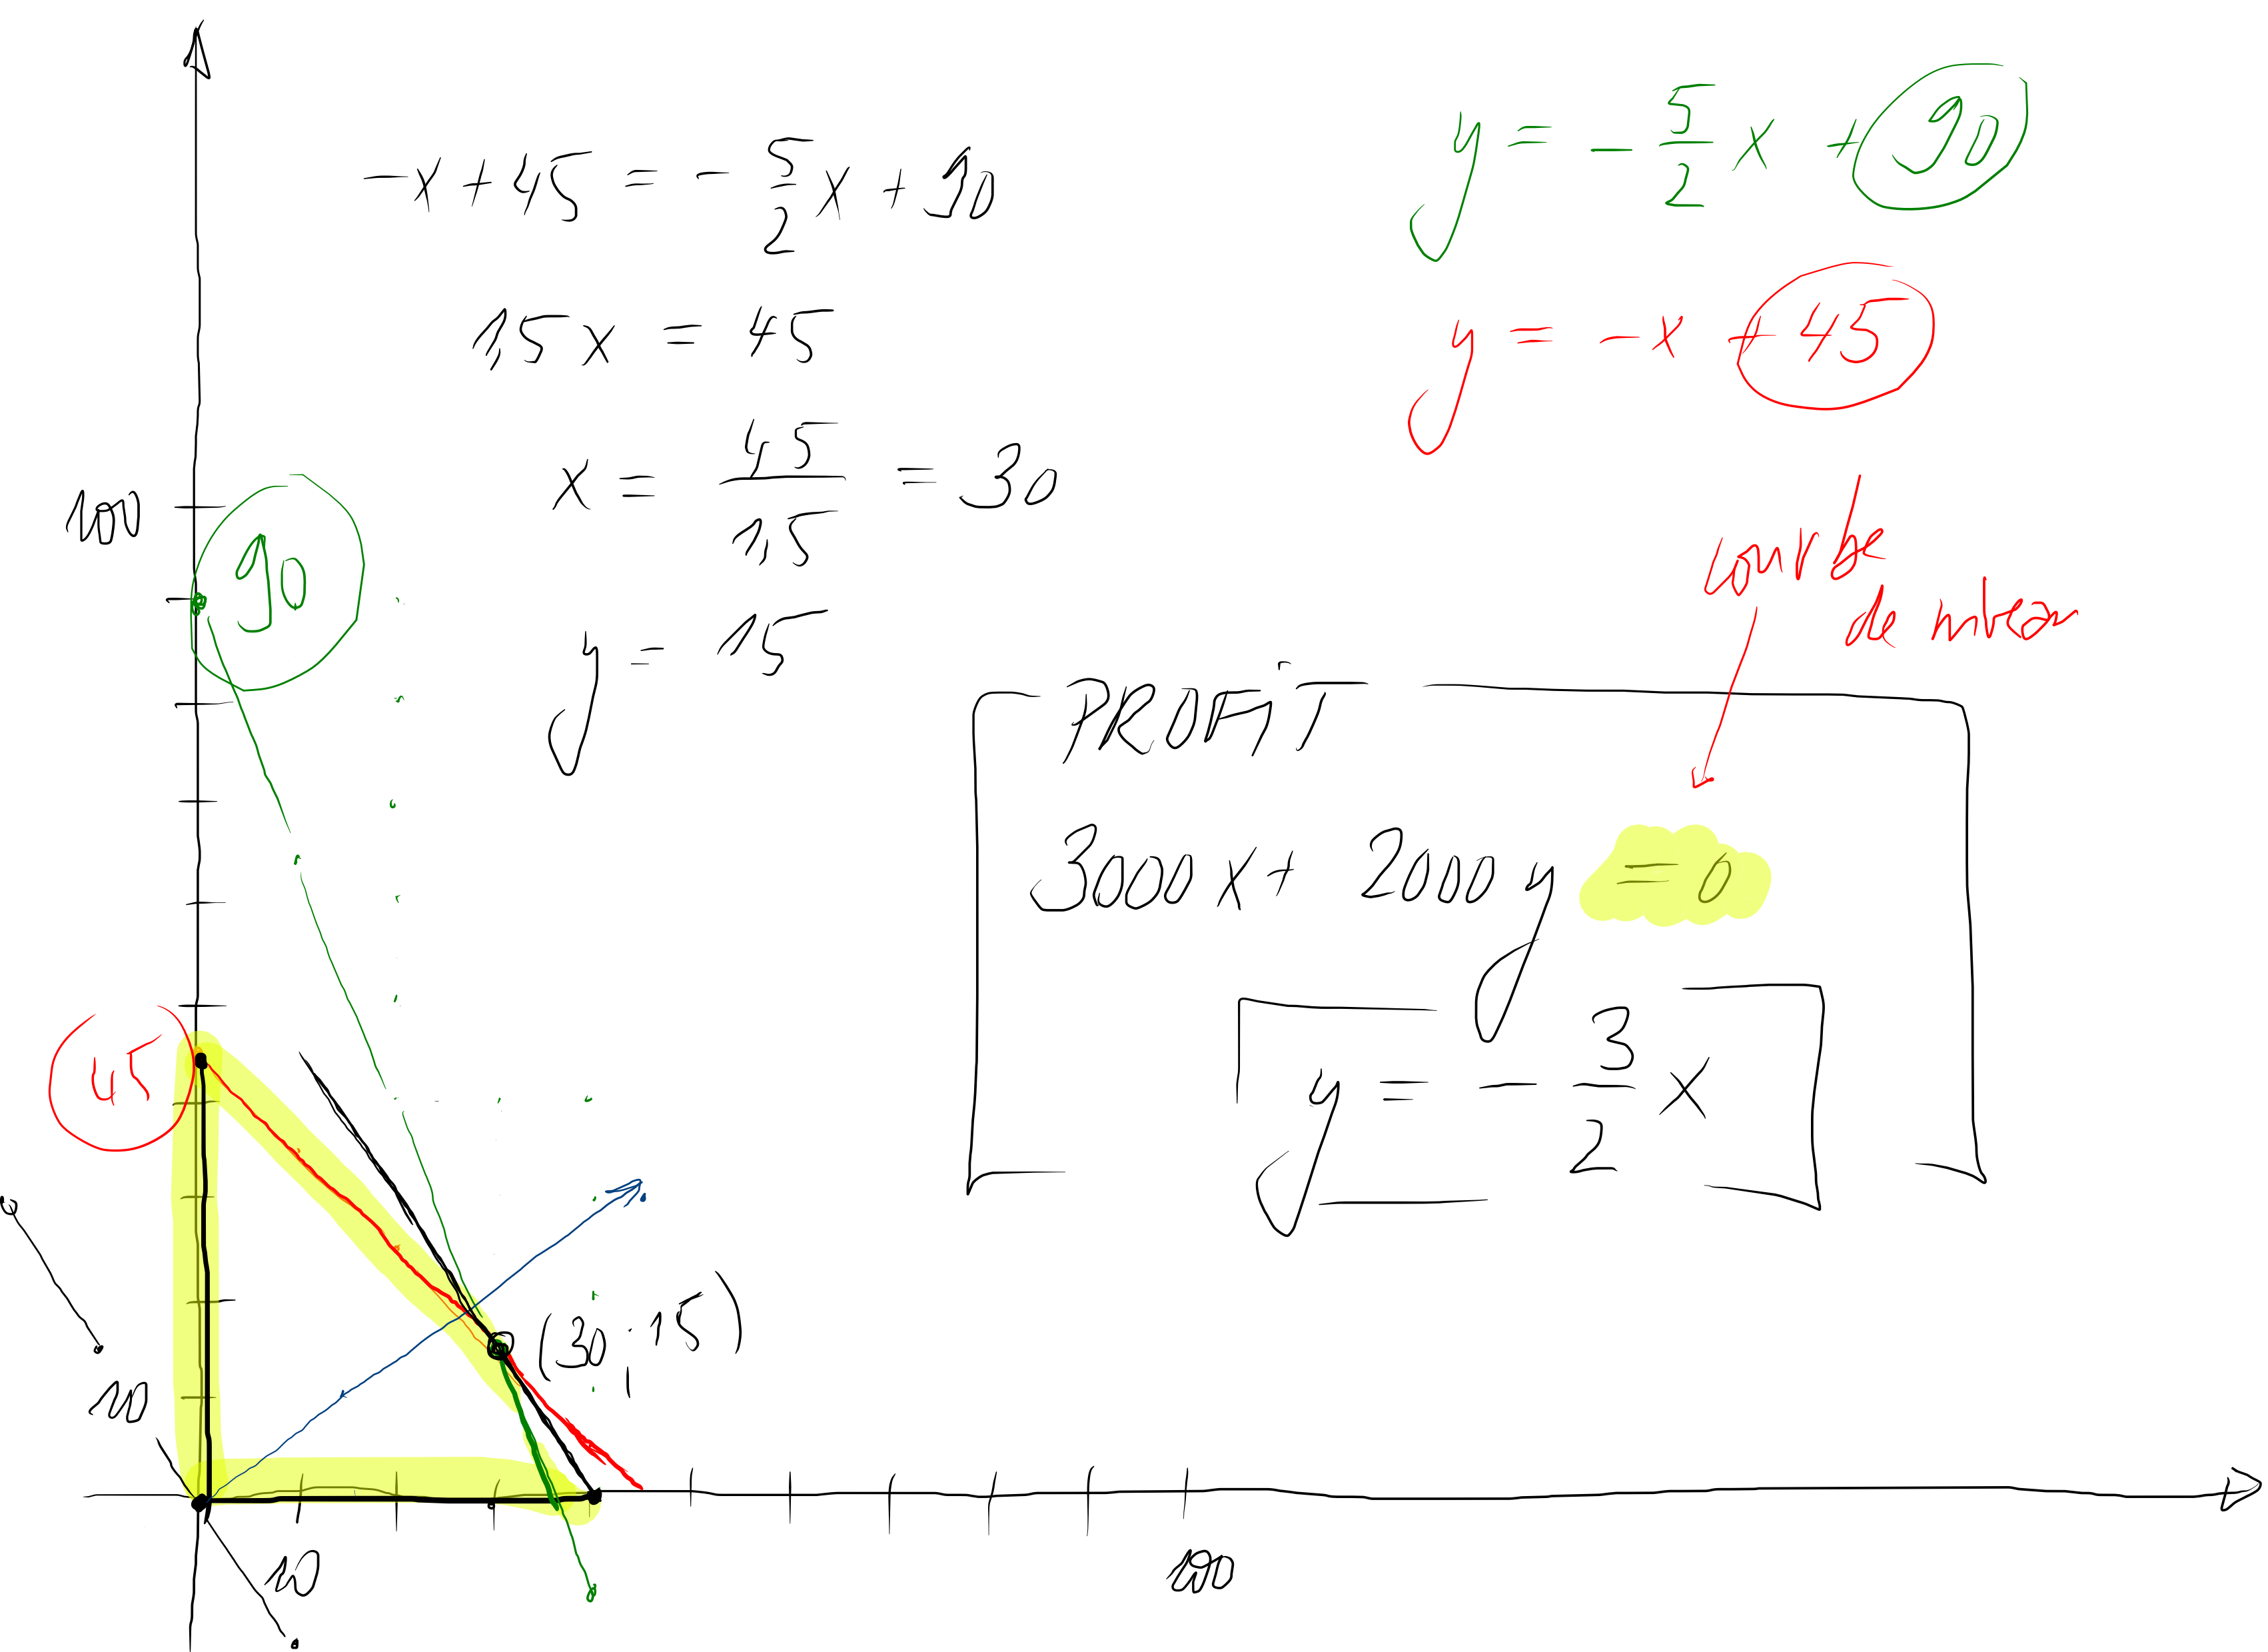 -x + 45 = - 5/2 x + 90
1,5x = 45
x = 45/1,5 = 30
y = 15
y = - 5/2 x + 90
y = -x + 45
courbe
de niveau
PROFIT
3000x + 2000y = 0
y = - 3/2 x
100
90
45
(30 ; 15)
10
10
100